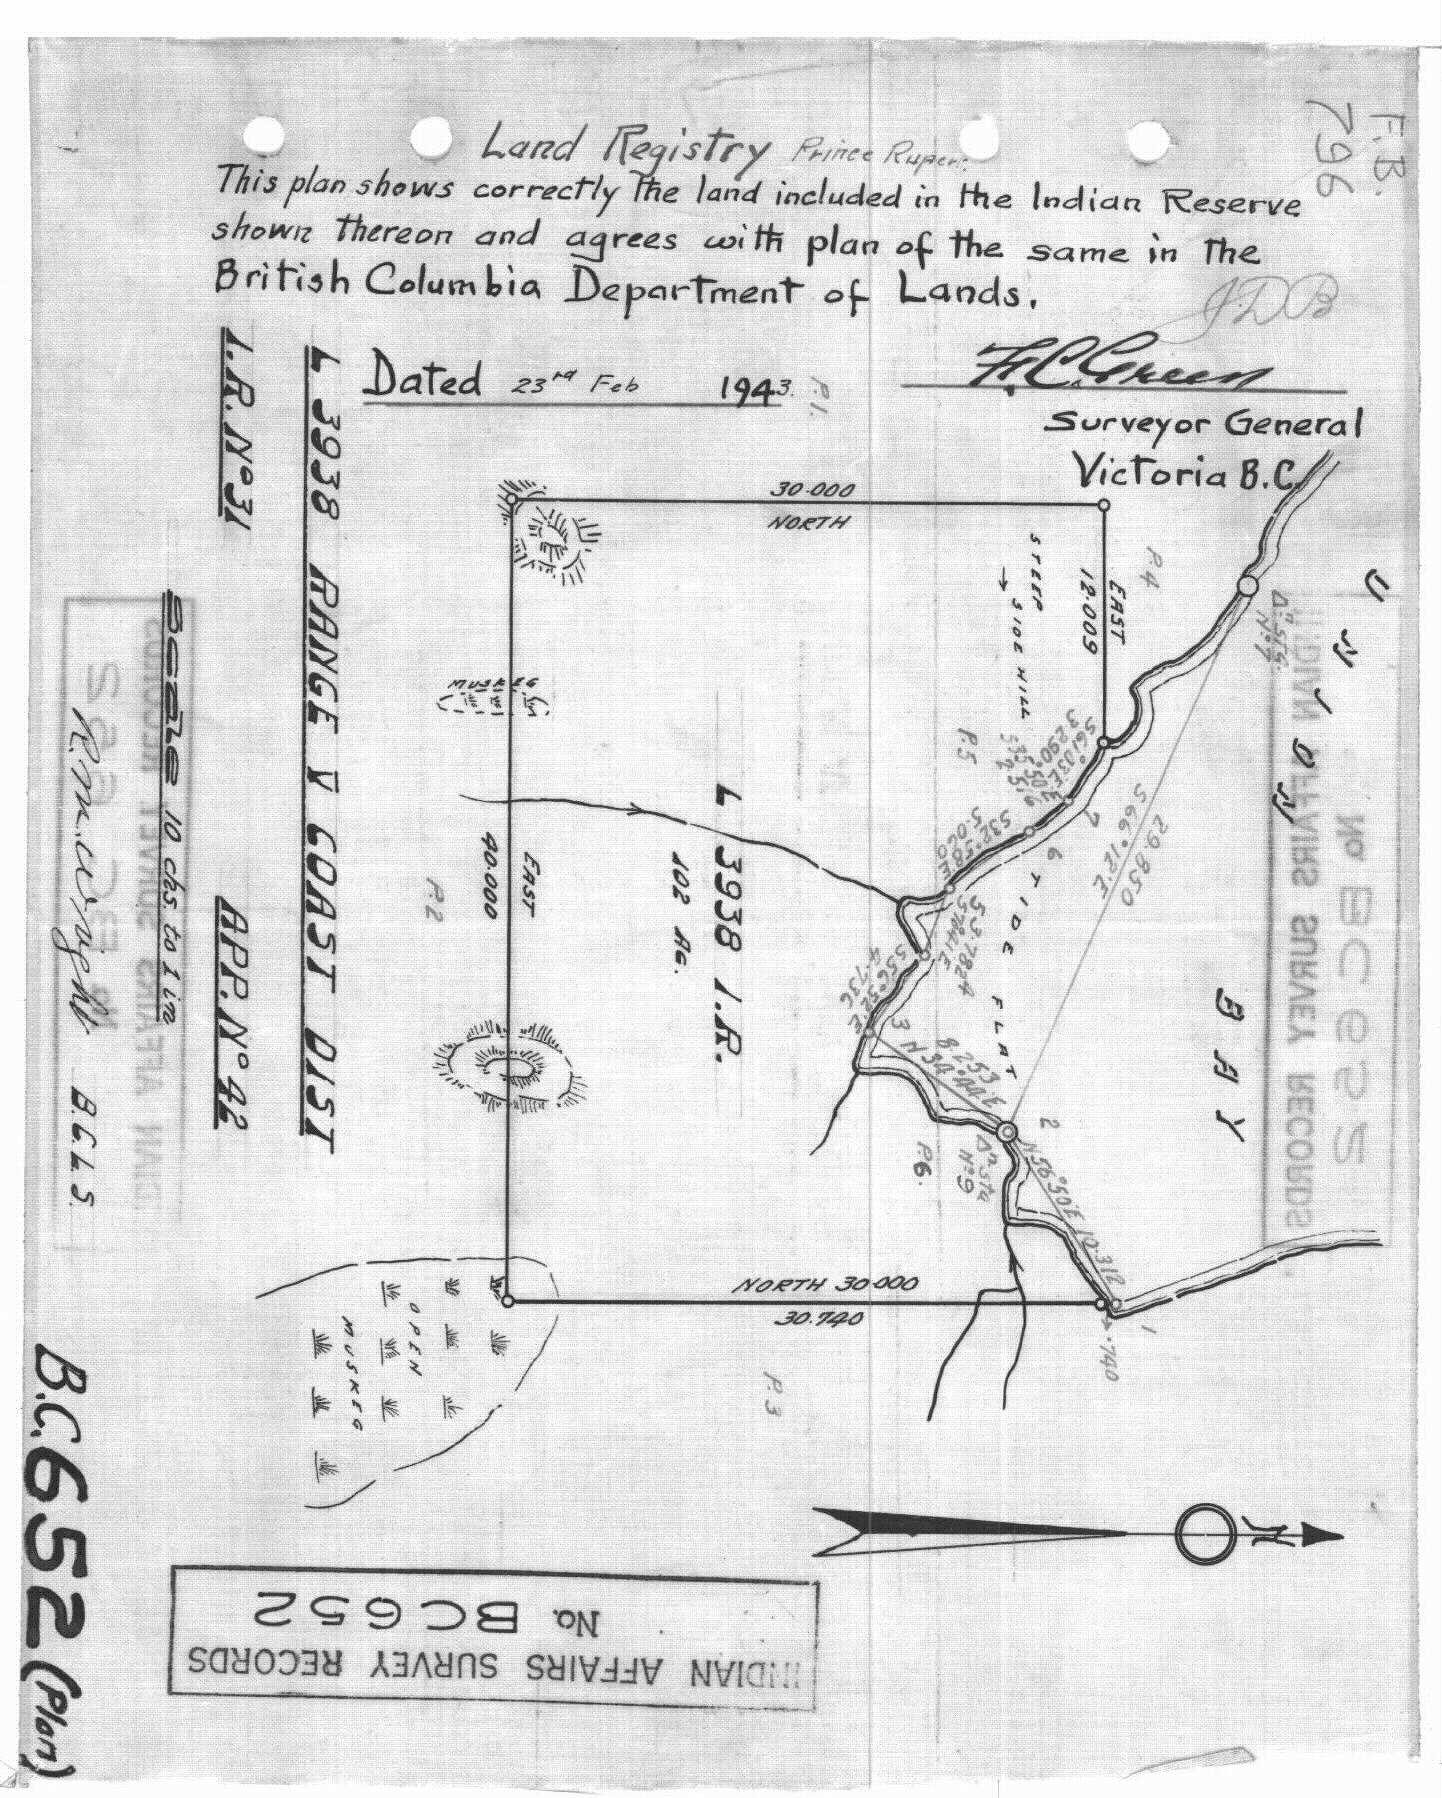 F.B.
796
Land Registry Prince Rupert
This plan shows correctly the land included in the Indian Reserve
shown thereon and agrees with plan of the same in the
British Columbia Department of Lands.
J.D.B
Dated 23rd Feb 1943.
F.C. Green
Surveyor General
Victoria B.C.
P.1.
I.R. No 31
APP. No 42
L 3938 RANGE V COAST DIST
Scale 10 chs. to 1 in
B.C.L.S.
30.000
NORTH
EAST
12.009
STEEP
SIDE HILL
P.4
P.5
MUSKEG
EAST
40.000
P.2
L 3938 I.R.
102 Ac.
S61°03'E
3.290
S32°58'E
5.060
S56°52'E
4.736
8.253
N34°44'E
7
6
3
2
1
TIDE FLAT
S66°12'E
29.850
BAY
P.6.
N56°50'E 10.312
.740
NORTH 30.000
30.740
P.3
OPEN
MUSKEG
N
B.C. 652 (Plan)
INDIAN AFFAIRS SURVEY RECORDS
No. BC652
INDIAN AFFAIRS SURVEY RECORDS
No. BC652